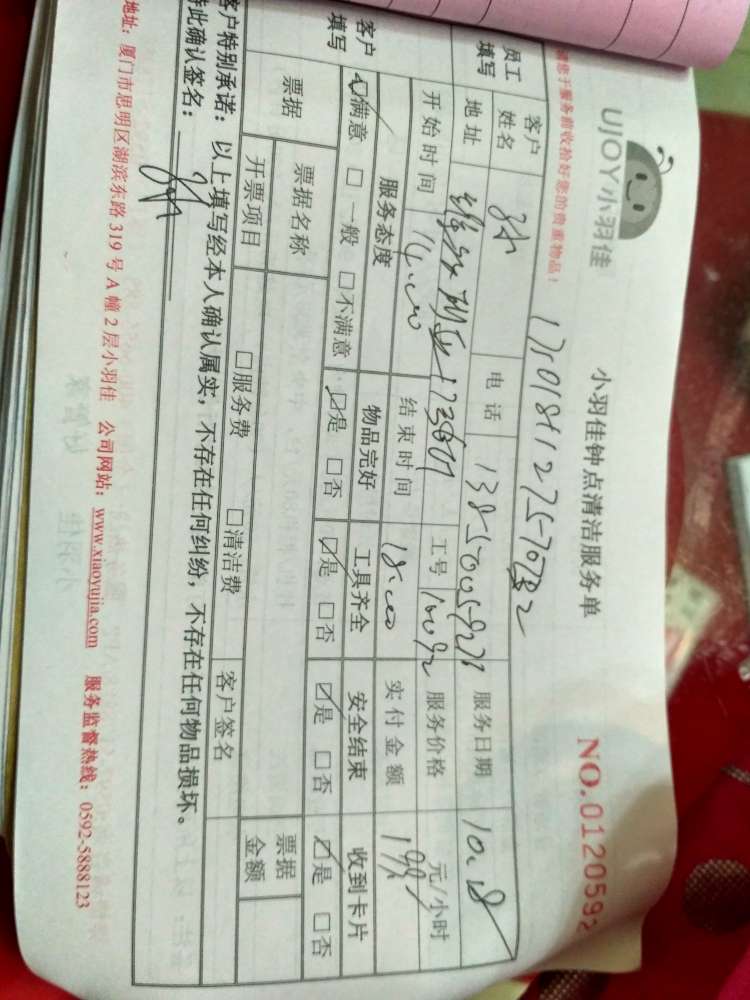 UJOY小羽佳
小羽佳钟点清洁服务单
NO.0120592
请您于服务前收拾好您的贵重物品！
员工填写
客户姓名
电话
服务日期 10.18
地址
工号
服务价格 元/小时
开始时间 14:00
结束时间 18:00
实付金额
客户填写
服务态度 物品完好 工具齐全 安全结束 收到卡片
☑满意 □一般 □不满意 ☑是 □否 ☑是 □否 ☑是 □否 ☑是 □否
票据 票据名称 票据金额
开票项目 □服务费 □清洁费 客户签名
客户特别承诺：以上填写经本人确认属实，不存在任何纠纷，不存在任何物品损坏。
特此确认签名：
地址：厦门市思明区湖滨东路319号A幢2层小羽佳 公司网站：www.xiaoyujia.com 服务监督热线：0592-5888123